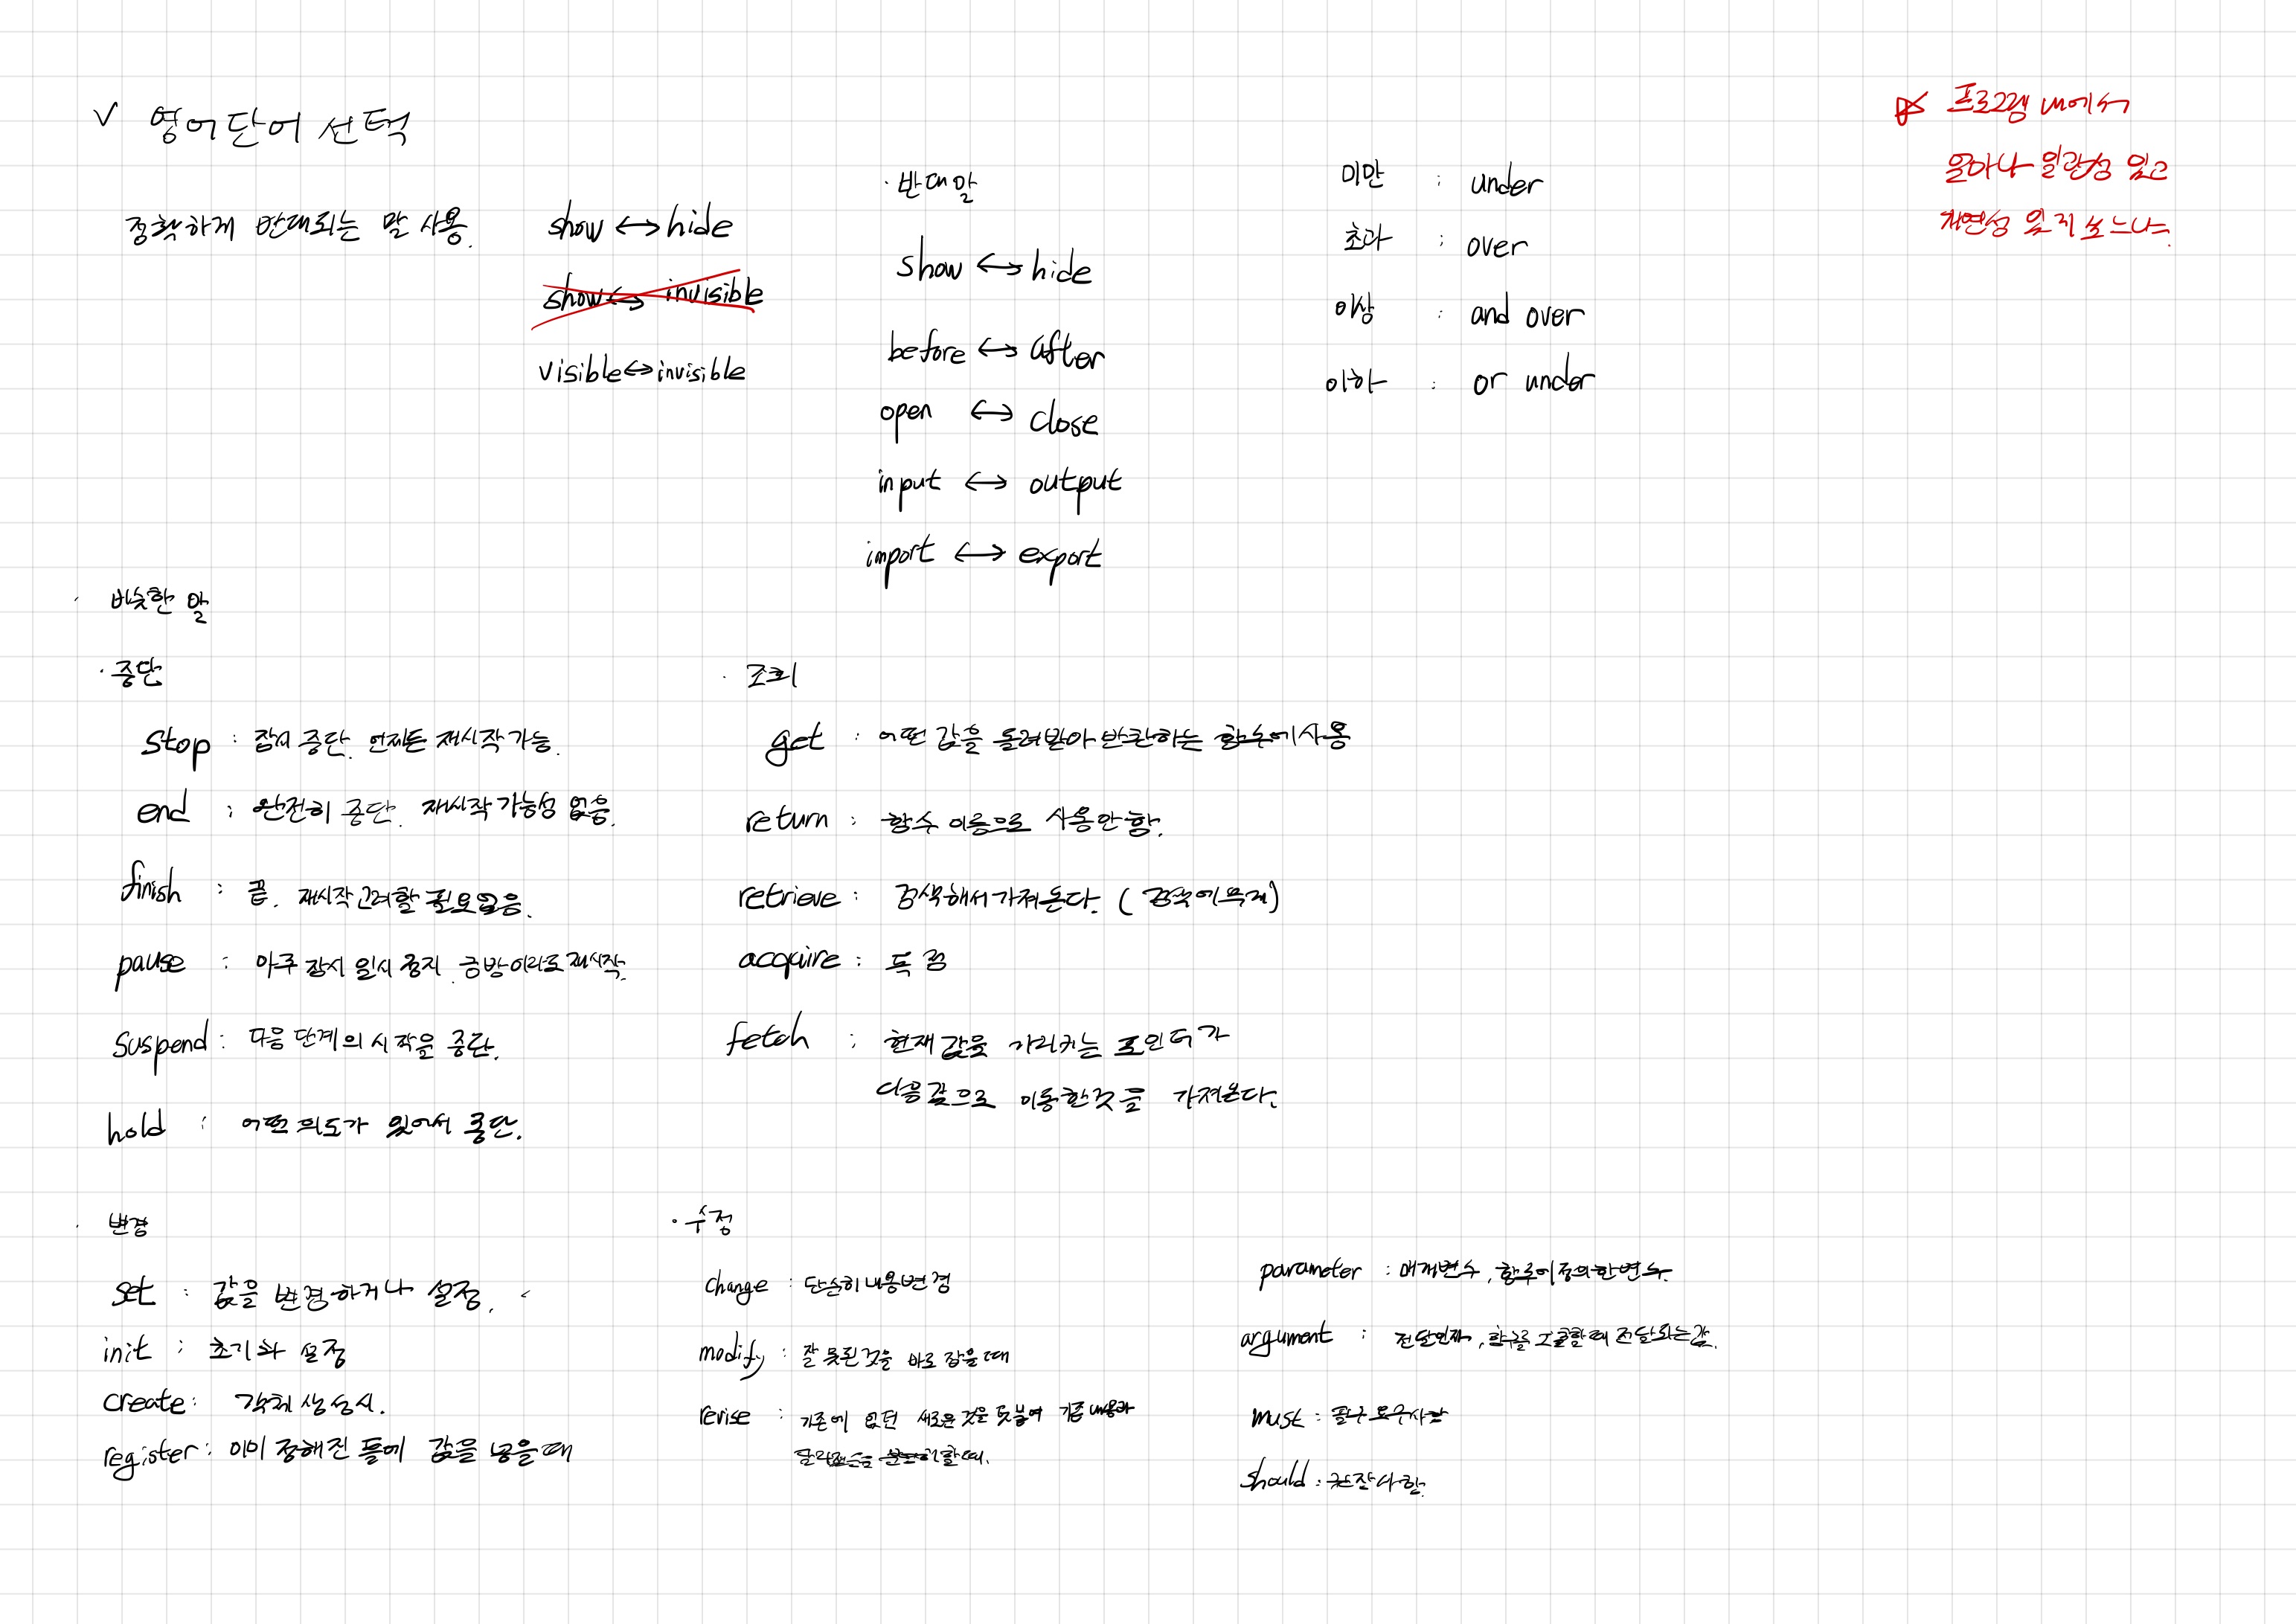 ✓ 영어단어 선택
정확하게 반대되는 말 사용.
show ↔ hide
show ↔ invisible
visible ↔ invisible
· 반대말
show ↔ hide
before ↔ after
open ↔ close
input ↔ output
import ↔ export
미만 : under
초과 : over
이상 : and over
이하 : or under
프로그램 내에서
얼마나 일관성 있고
개연성 있지 보느냐는
· 비슷한 말
· 중단
stop : 잠시 중단. 언제든 재시작 가능.
end : 완전히 중단. 재시작 가능성 없음.
finish : 끝. 재시작 고려할 필요없음.
pause : 아주 잠시 일시 중지. 금방이라도 재시작.
suspend : 다음 단계의 시작을 중단.
hold : 어떤 의도가 있어서 중단.
· 조회
get : 어떤 값을 돌려받아 반환하는 함수에 사용
return : 함수 이름으로 사용안함.
retrieve : 검색해서 가져온다. (검색에 목적)
acquire : 독점
fetch : 현재 값을 가리키는 포인터가
다음값으로 이동한것을 가져온다.
· 변경
set : 값을 변경하거나 설정.
init : 초기화 설정
create : 객체 생성시.
register : 이미 정해진 틀에 값을 넣을때
· 수정
change : 단순히 내용변경
modify : 잘 못된 것을 바로 잡을때
revise : 기존에 없던 새로운 것을 덧붙여 기존 내용과
달라졌음을 할때.
parameter : 매개변수, 함수에 정의한 변수.
argument : 전달인자, 함수를 호출할때 전달되는 값.
must : 필수 요구사항
should : 권장사항.